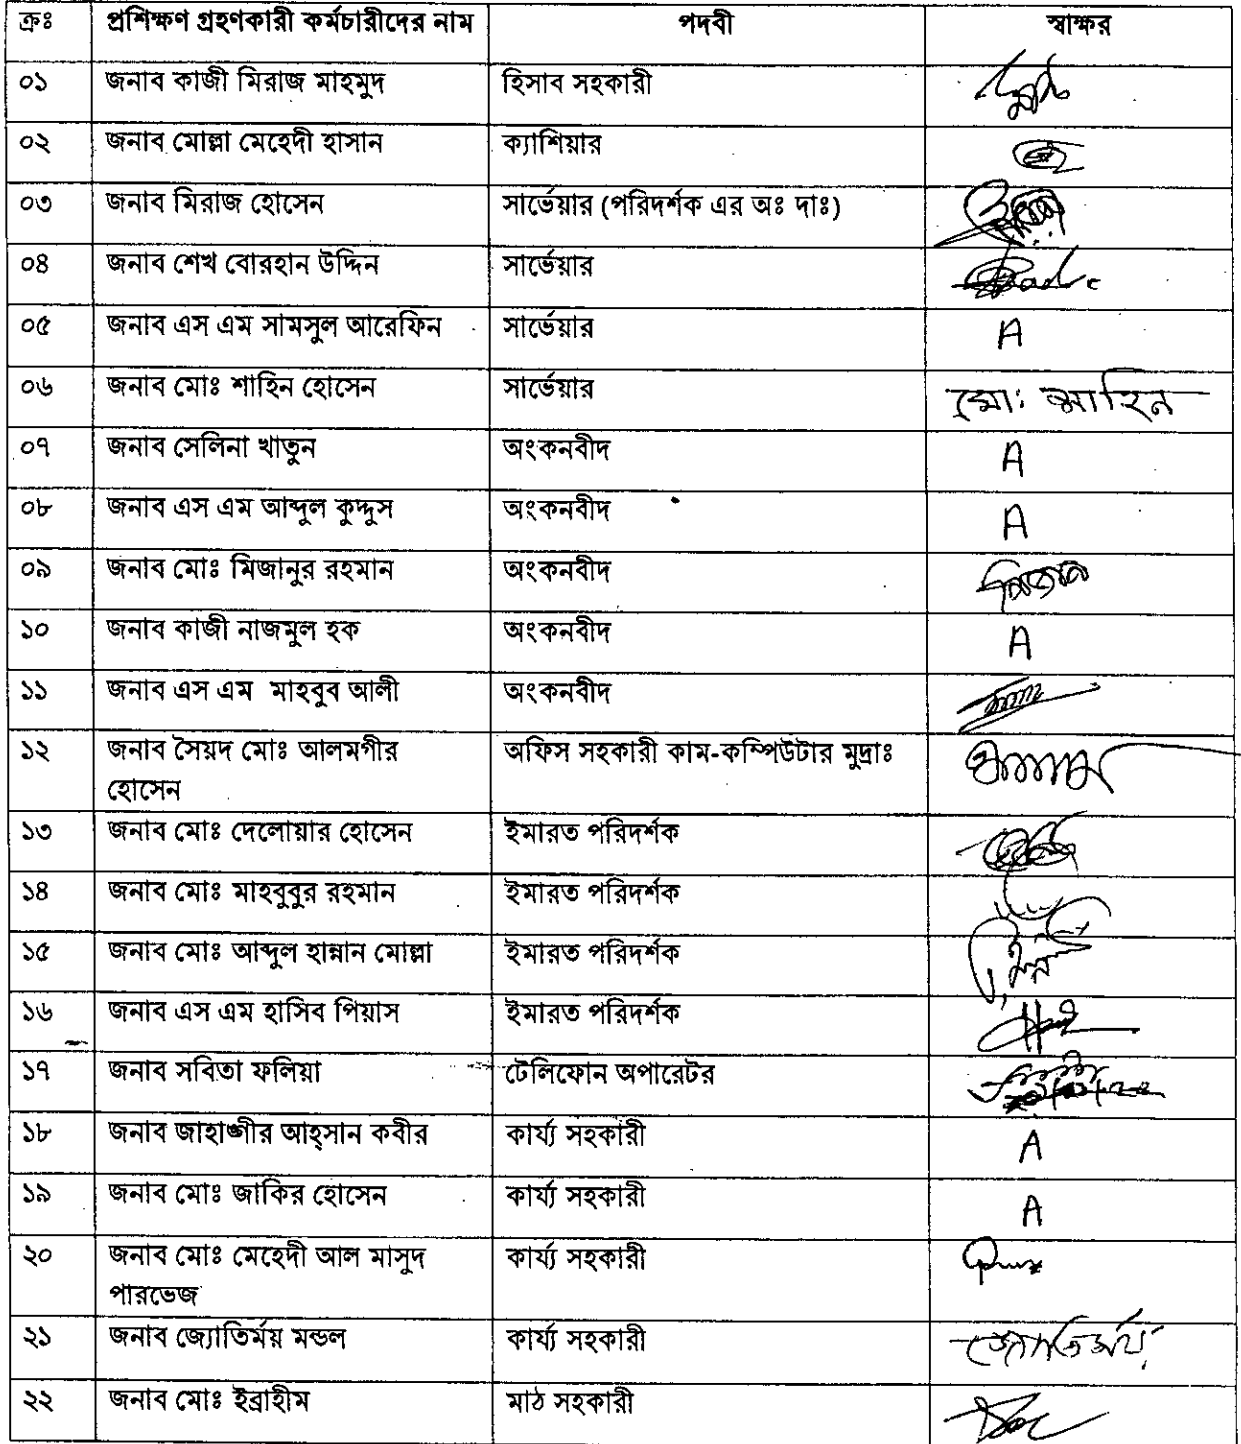 ক্রঃ প্রশিক্ষণ গ্রহণকারী কর্মচারীদের নাম পদবী স্বাক্ষর
০১ জনাব কাজী মিরাজ মাহমুদ হিসাব সহকারী
০২ জনাব মোল্লা মেহেদী হাসান ক্যাশিয়ার
০৩ জনাব মিরাজ হোসেন সার্ভেয়ার (পরিদর্শক এর অঃ দাঃ)
০৪ জনাব শেখ বোরহান উদ্দিন সার্ভেয়ার
০৫ জনাব এস এম সামসুল আরেফিন সার্ভেয়ার A
০৬ জনাব মোঃ শাহিন হোসেন সার্ভেয়ার মো: শাহিন
০৭ জনাব সেলিনা খাতুন অংকনবীদ A
০৮ জনাব এস এম আব্দুল কুদ্দুস অংকনবীদ A
০৯ জনাব মোঃ মিজানুর রহমান অংকনবীদ
১০ জনাব কাজী নাজমুল হক অংকনবীদ A
১১ জনাব এস এম মাহবুব আলী অংকনবীদ
১২ জনাব সৈয়দ মোঃ আলমগীর অফিস সহকারী কাম-কম্পিউটার মুদ্রাঃ
হোসেন
১৩ জনাব মোঃ দেলোয়ার হোসেন ইমারত পরিদর্শক
১৪ জনাব মোঃ মাহবুবুর রহমান ইমারত পরিদর্শক
১৫ জনাব মোঃ আব্দুল হান্নান মোল্লা ইমারত পরিদর্শক
১৬ জনাব এস এম হাসিব পিয়াস ইমারত পরিদর্শক
১৭ জনাব সবিতা ফলিয়া টেলিফোন অপারেটর
১৮ জনাব জাহাঙ্গীর আহ্সান কবীর কার্য্য সহকারী A
১৯ জনাব মোঃ জাকির হোসেন কার্য্য সহকারী A
২০ জনাব মোঃ মেহেদী আল মাসুদ কার্য্য সহকারী
পারভেজ
২১ জনাব জ্যোতির্ময় মন্ডল কার্য্য সহকারী জ্যোতির্ময়
২২ জনাব মোঃ ইব্রাহীম মাঠ সহকারী